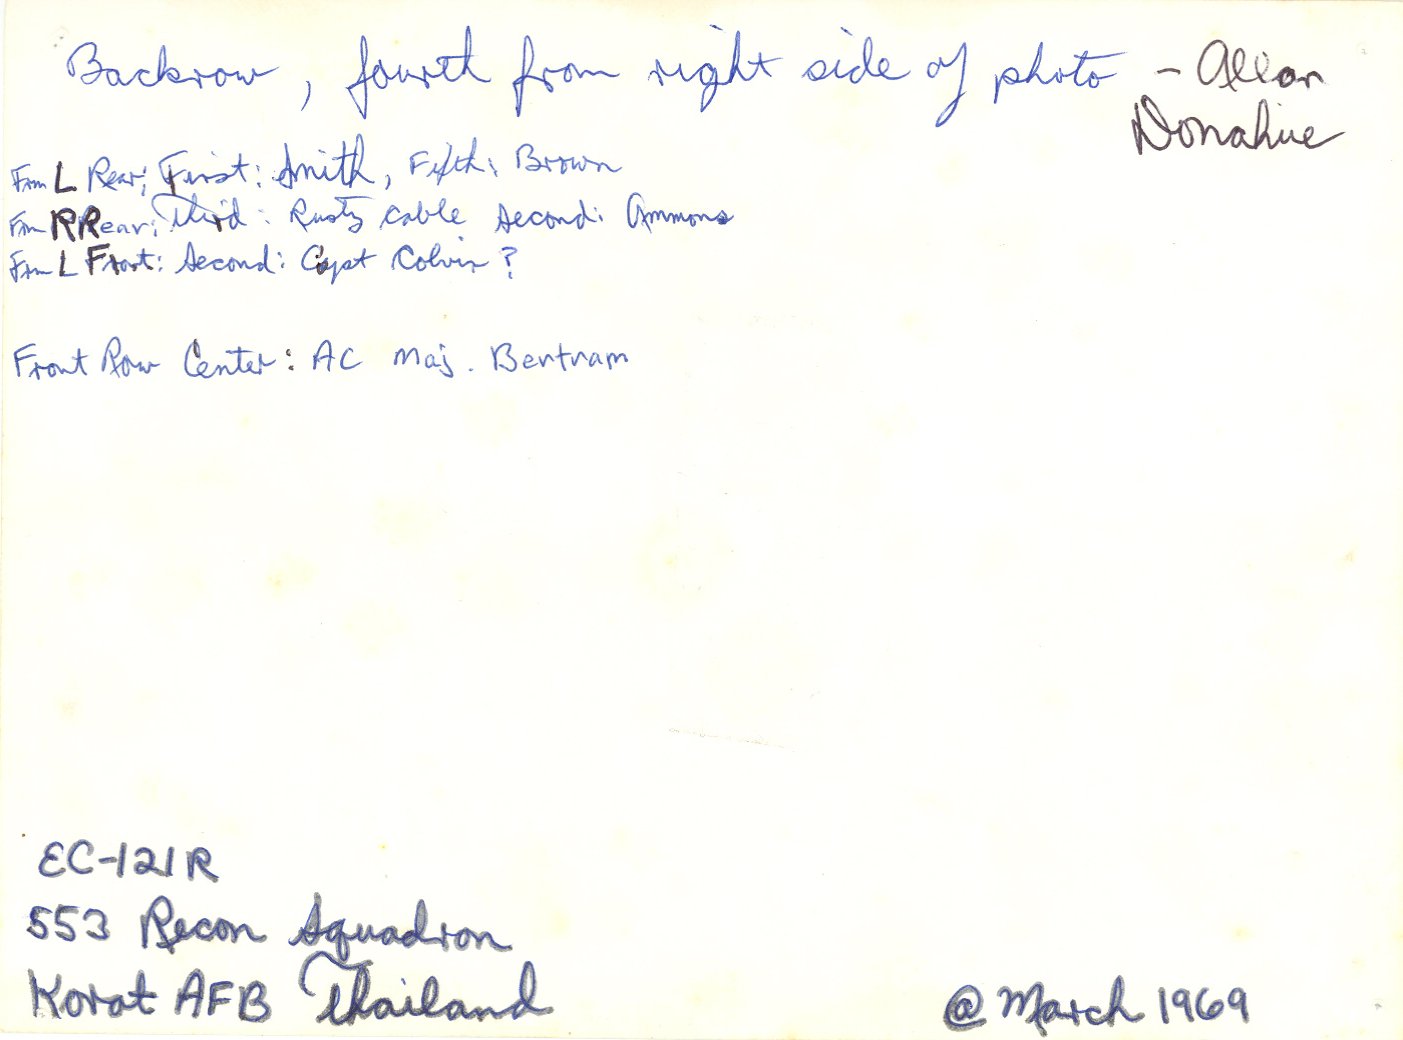 Backrow, fourth from right side of photo - Allan
Donahue
Frm L Rear; First: Smith, Fifth: Brown
Frm R Rear: Third: Rusty Cable Second: Ammons
Frm L Front: Second: Capt Colvin ?
Front Row Center: AC Maj. Bertram
EC-121R
553 Recon Squadron
Korat AFB Thailand
@ March 1969